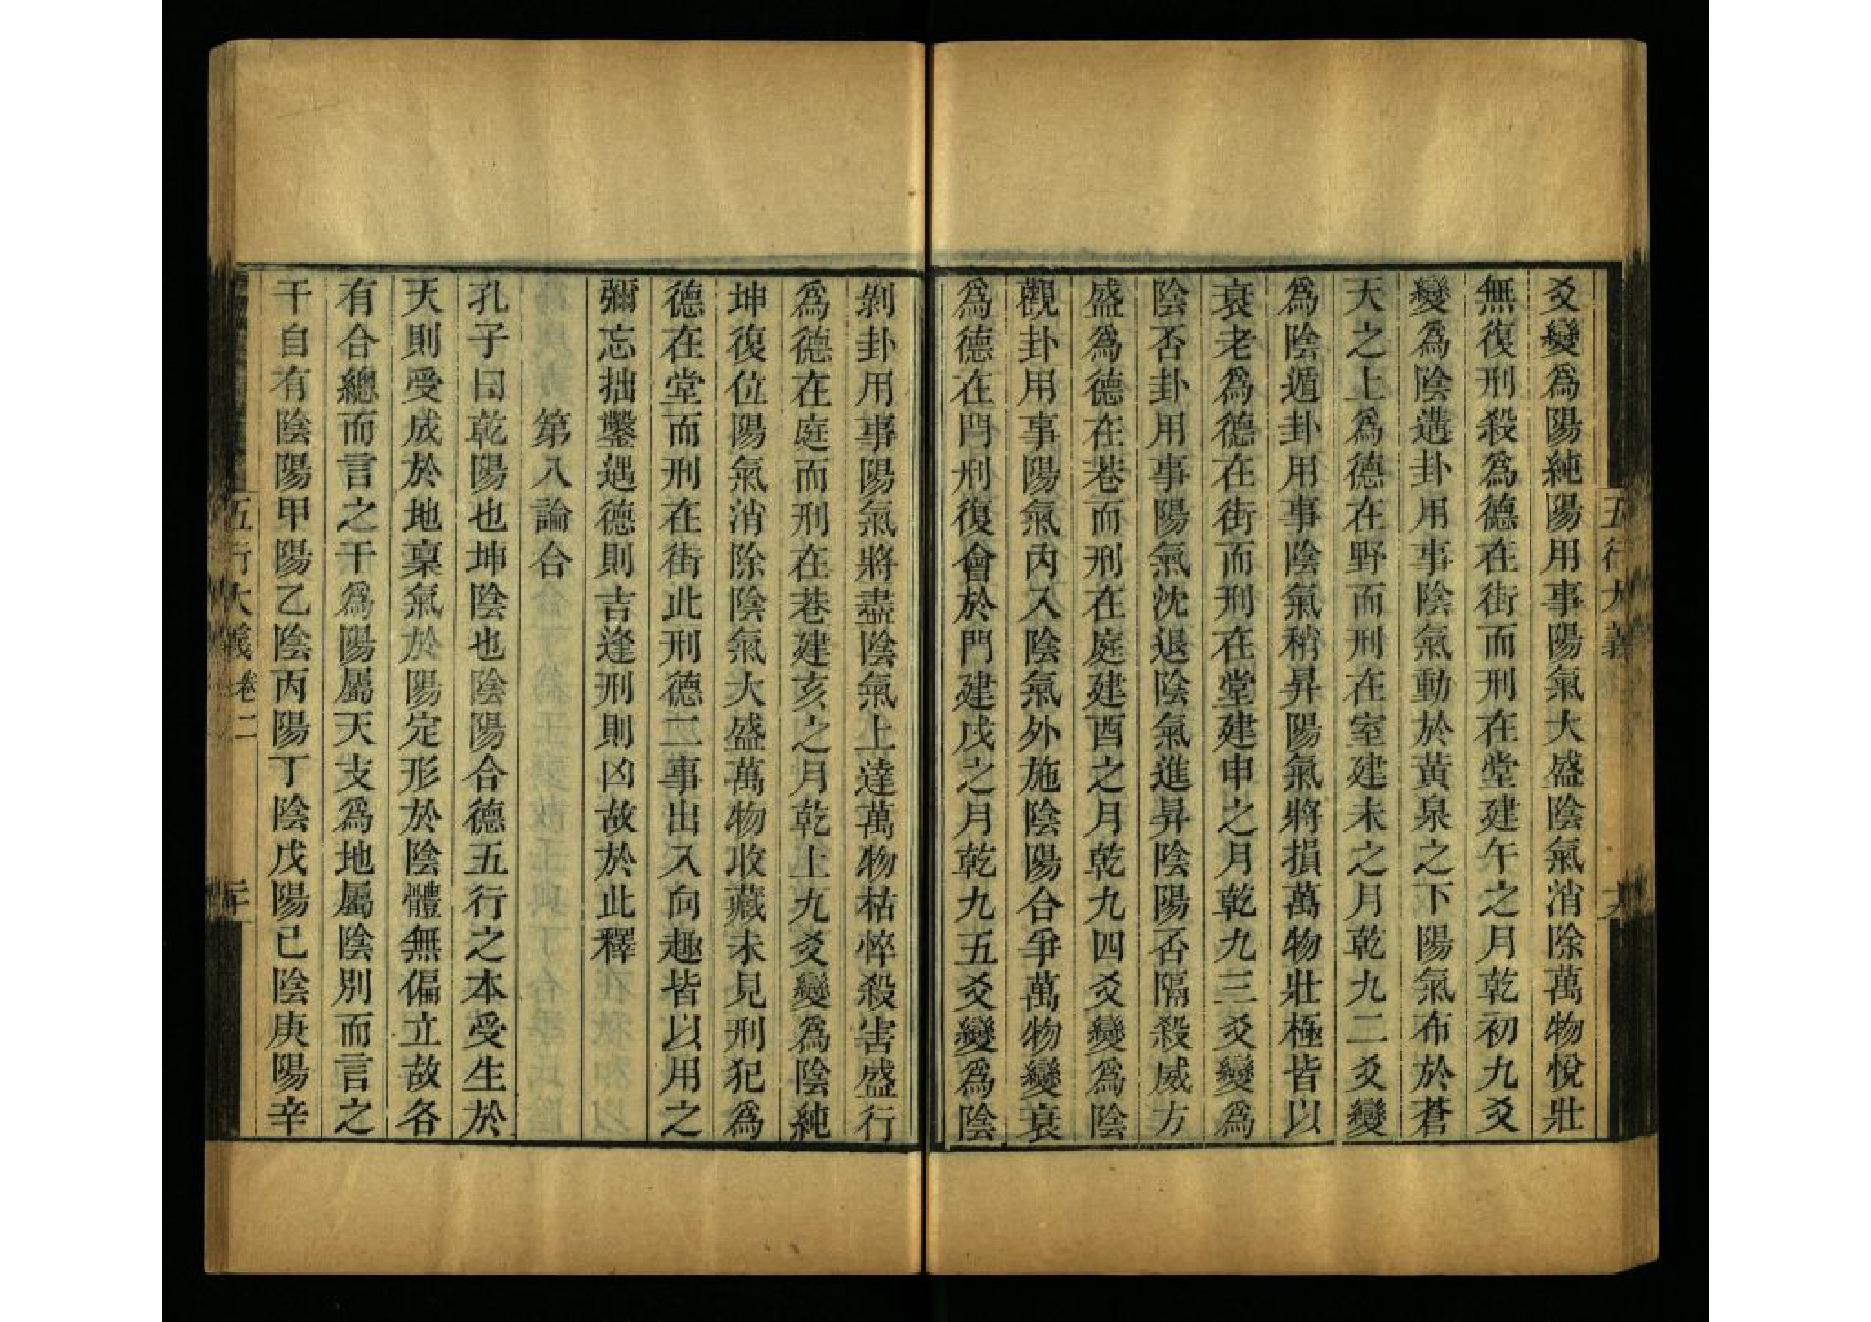 爻變爲陽純陽用事陽氣大盛陰氣消除萬物悅壯
無復刑殺爲德在街而刑在堂建午之月乾初九爻
變爲陰遘卦用事陰氣動於黃泉之下陽氣布於蒼
天之上爲德在野而刑在室建未之月乾九二爻變
爲陰遁卦用事陰氣稍昇陽氣將損萬物壯極皆以
衰老爲德在街而刑在堂建申之月乾九三爻變爲
陰否卦用事陽氣沈退陰氣進昇陰陽否隔殺威方
盛爲德在巷而刑在庭建酉之月乾九四爻變爲陰
觀卦用事陽氣內入陰氣外施陰陽合爭萬物變衰
爲德在門刑復會於門建戌之月乾九五爻變爲陰
剝卦用事陽氣將盡陰氣上達萬物枯悴殺害盛行
爲德在庭而刑在巷建亥之月乾上九爻變爲陰純
坤復位陽氣消除陰氣大盛萬物收藏未見刑犯爲
德在堂而刑在街此刑德二事出入向趣皆以用之
彌忘拙鑿遇德則吉逢刑則凶故於此釋
第八論合
孔子曰乾陽也坤陰也陰陽合德五行之本受生於
天則受成於地稟氣於陽定形於陰體無偏立故各
有合總而言之干爲陽屬天支爲地屬陰別而言之
干自有陰陽甲陽乙陰丙陽丁陰戊陽己陰庚陽辛
五行大義 卷二